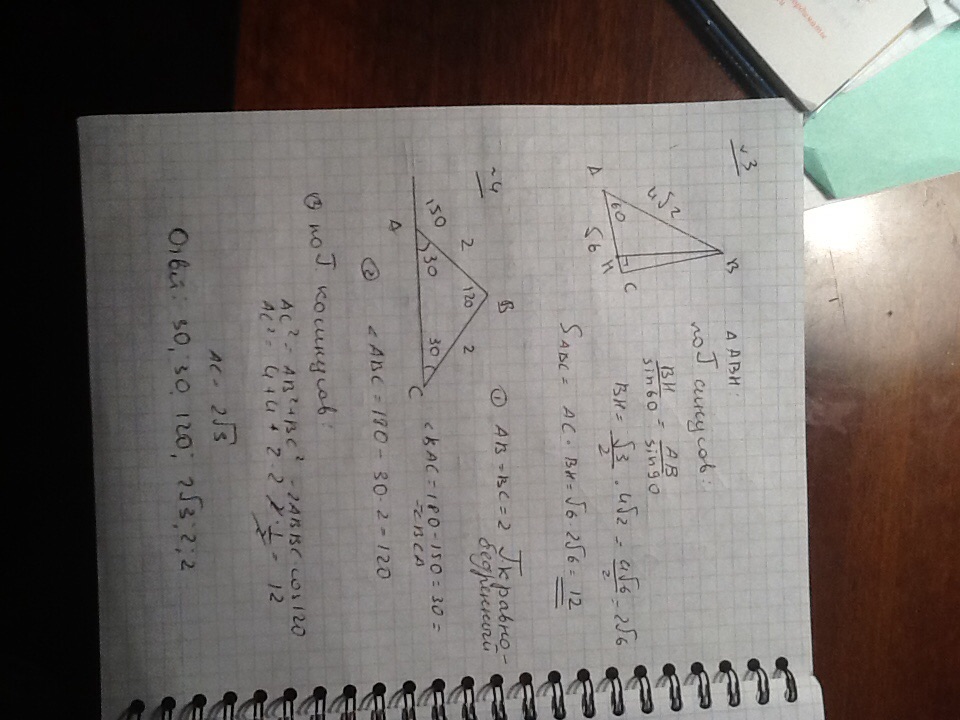 √3
B
4√2
60
A
√6
H
C
△ABH:
по T синусов:
BH/sin60 = AB/sin90
BH = √3/2 · 4√2 = 4√6/2 = 2√6
S ABC = AC · BH = √6 · 2√6 = 12
~4
B
2
120
2
150
30
30
A
C
① AB = BC = 2 ⇒ к равно-
бедренный
<BAC = 180 - 150 = 30 =
= <BCA
② <ABC = 180 - 30·2 = 120
③ по T. косинусов:
AC² = AB² + BC² - 2ABBC cos120
AC² = 4 + 4 + 2·2·2·1/2 = 12
AC = 2√3
Ответ: 30; 30, 120; 2√3; 2; 2